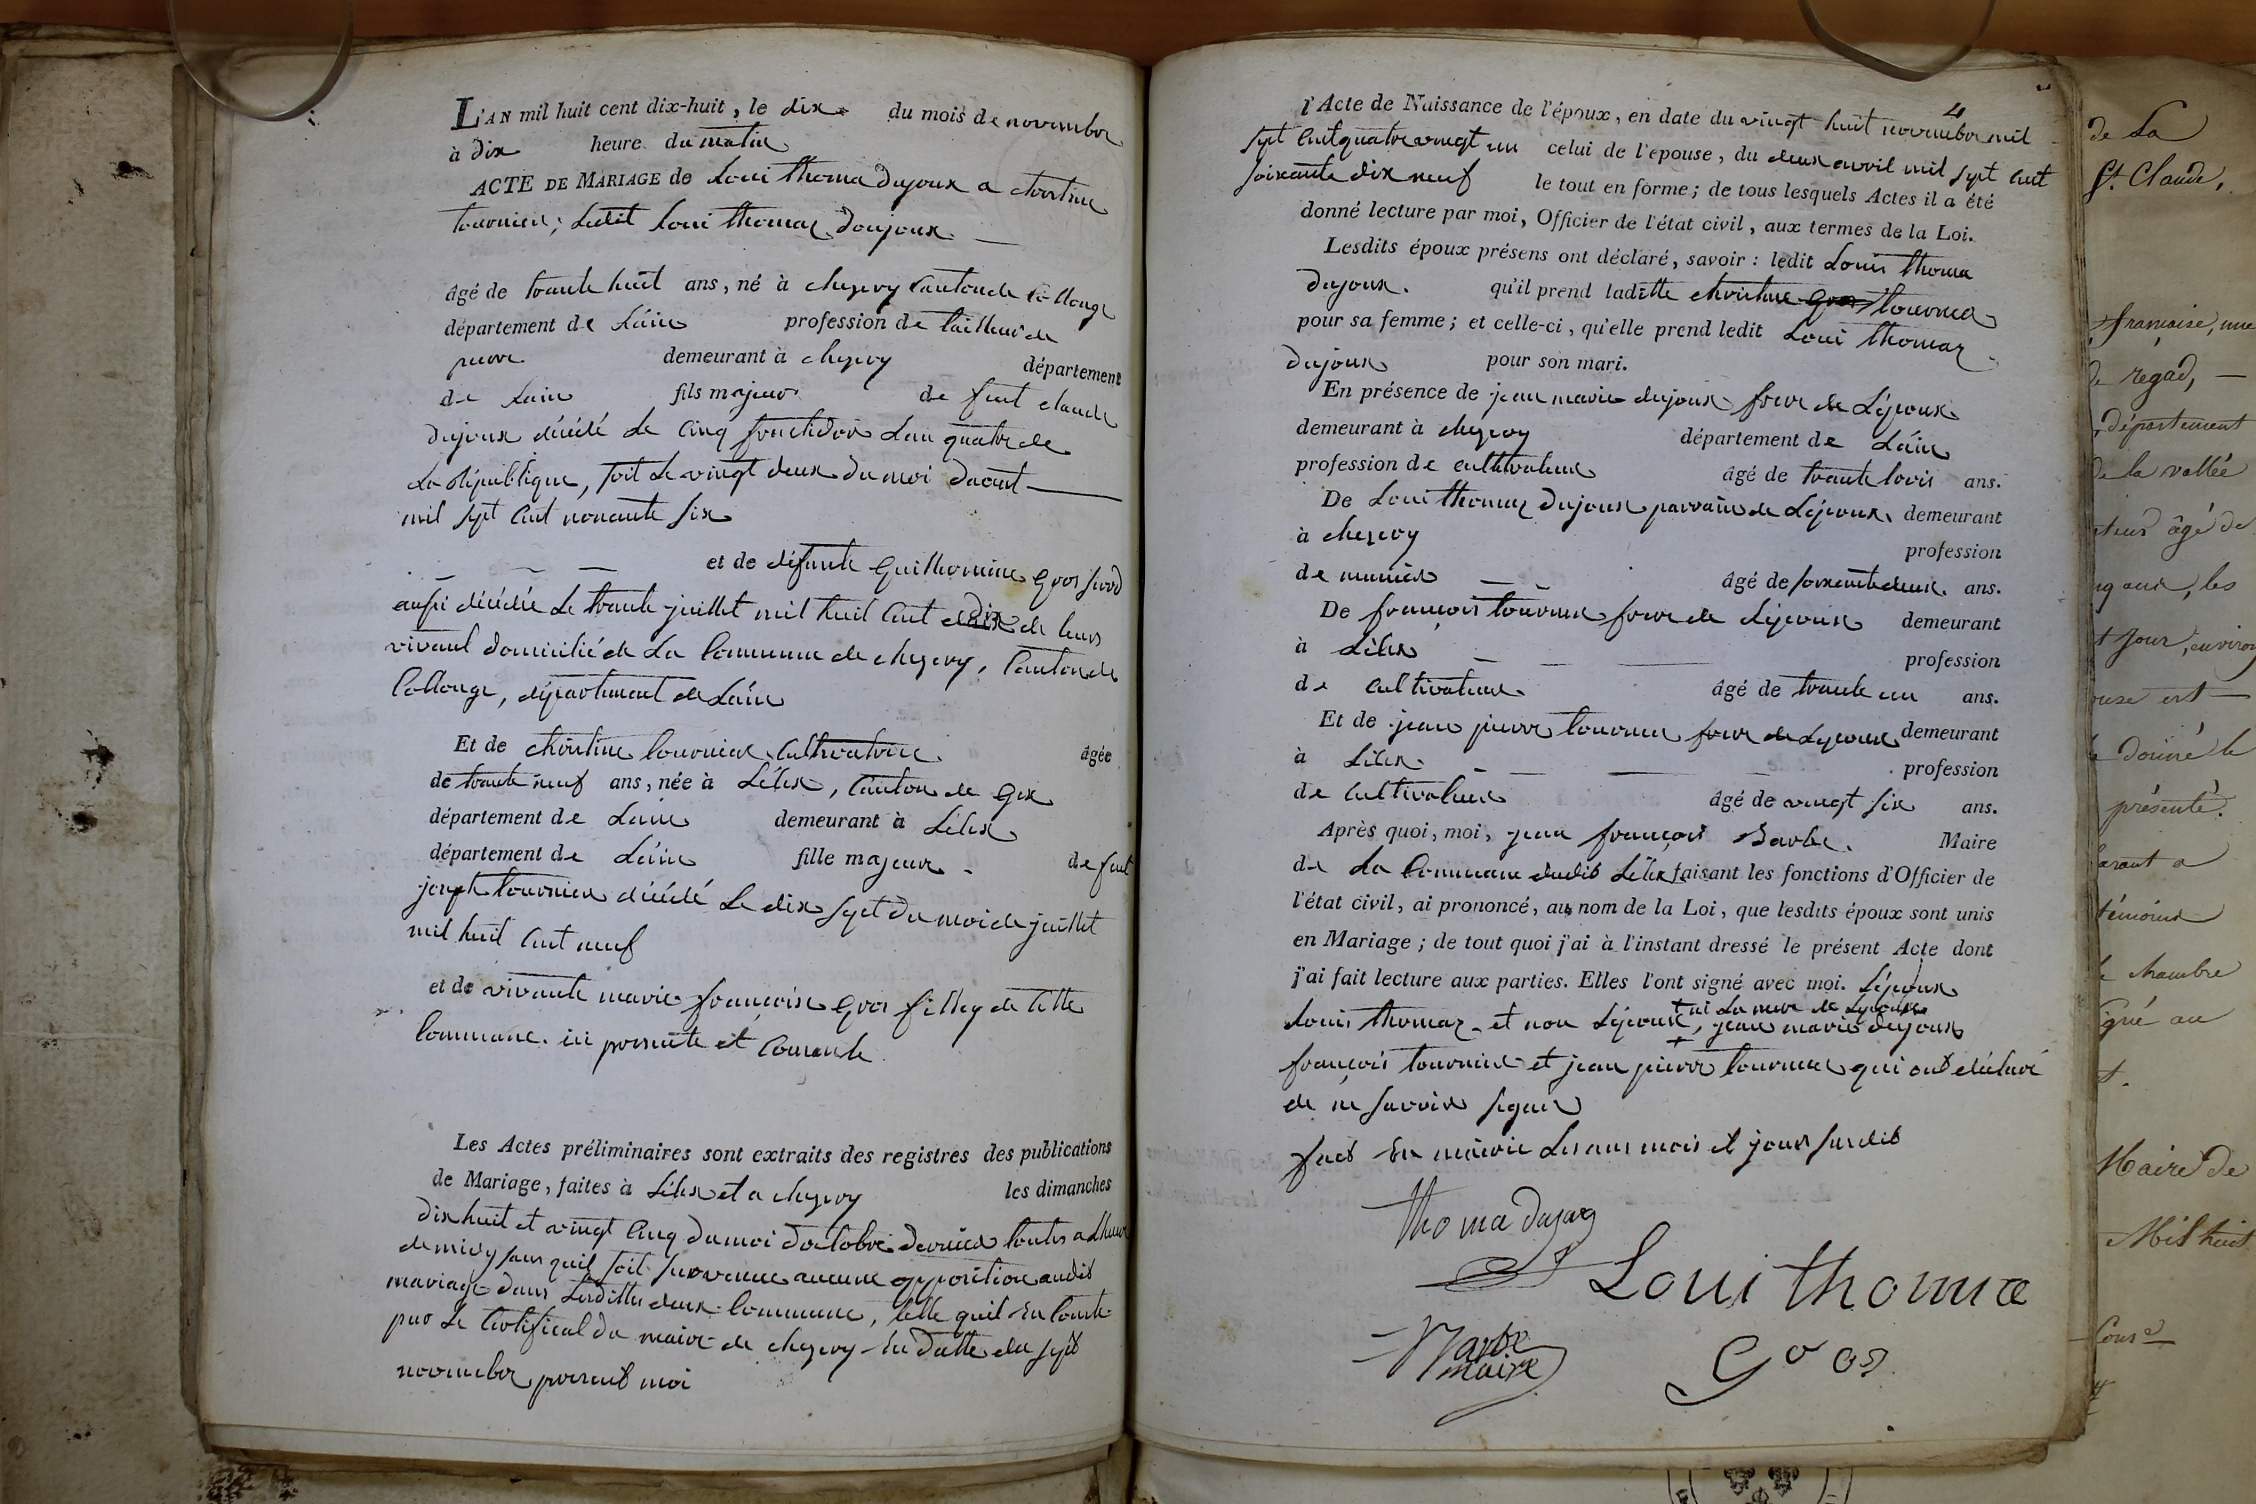 L'AN mil huit cent dix-huit, le dix du mois de novembre
à dix heure du matin
ACTE DE MARIAGE de Loui thoma dujoux a christine
tournier; ledit Loui thomaz doujoux
âgé de trante huit ans, né à chezery Canton de Collonge
département de Lain profession de tailleur de
pierre demeurant à chezery département
de Lain fils majeur de feut claude
dujoux décédé le cinq fructidor Lan quatre de
La République, soit le vingt deux du moi daout
mil sept cent nonante six
et de défunte Guillermine Gros
aussi décédée le trante juillet mil huit cent dix de leurs
vivant domicilié de La Commune de chezery, Canton de
Collonge, département de Lain
Et de christine tournier Cultivatrice âgée
de trante neuf ans, née à Lélex, Canton de Gex
département de Lain demeurant à Lélex
département de Lain fille majeure de feut
joseph tournier décédé Le dix sept du moi de juillet
mil huit cent neuf
et de vivante marie françoise Gros filley de cette
commune. ici presente et consente
Les Actes préliminaires sont extraits des registres des publications
de Mariage, faites à Lélex et a chezery les dimanches
dix huit et vingt cinq du moi doctobre dernier toutes a Lheure
de midy sans quil soit survenue aucune opposition audit
mariage dans Lesdittes deux commune, telle quil en conte
par Le Certificat du maire de chezery en datte du sept
novembre present moi
4
l'Acte de Naissance de l'époux, en date du vingt huit novembre mil
sept cent quatre vingt un celui de l'épouse, du deux avril mil sept cent
soixante dix neuf le tout en forme; de tous lesquels Actes il a été
donné lecture par moi, Officier de l'état civil, aux termes de la Loi.
Lesdits époux présens ont déclaré, savoir: ledit Louis thoma
dujoux. qu'il prend laditte christine Gros tournier
pour sa femme; et celle-ci, qu'elle prend ledit Loui thomaz
dujoux pour son mari.
En présence de jean marie dujoux frere de Lépoux
demeurant à chezery département de Lain
profession de cultivateur âgé de trante trois ans.
De Loui thomaz dujoux parrain de Lépoux demeurant
à chezery profession
de munier âgé de soixante deux ans.
De françois tournier frere de Lépouse demeurant
à Lélex profession
de cultivateur âgé de trante un ans.
Et de jean pierre tournier frere de Lépouse demeurant
à Lélex profession
de Cultivateur âgé de vingt six ans.
Après quoi, moi, jean françois Barbe. Maire
de La Commune dudit Lélex faisant les fonctions d'Officier de
l'état civil, ai prononcé, au nom de la Loi, que lesdits époux sont unis
en Mariage; de tout quoi j'ai à l'instant dressé le présent Acte dont
j'ai fait lecture aux parties. Elles l'ont signé avec moi. Lépoux
+ ni La mere de Lépouse
Louis thomaz et non Lépouse, jean marie dujoux
françois tournier et jean pierre tournier qui ont déclaré
de ne savoir signer
fait en mairie Les ans mois et jour susdit
thoma dujoug
Loui thoma
Barbe
maire
Gros
de La
St. Claude,
française, une
de regad,
département
de la vallée
âgé de
les
jour, environ
est
donné le
présenté.
a
témoins
chambre
signé au
Maire de
Mil huit